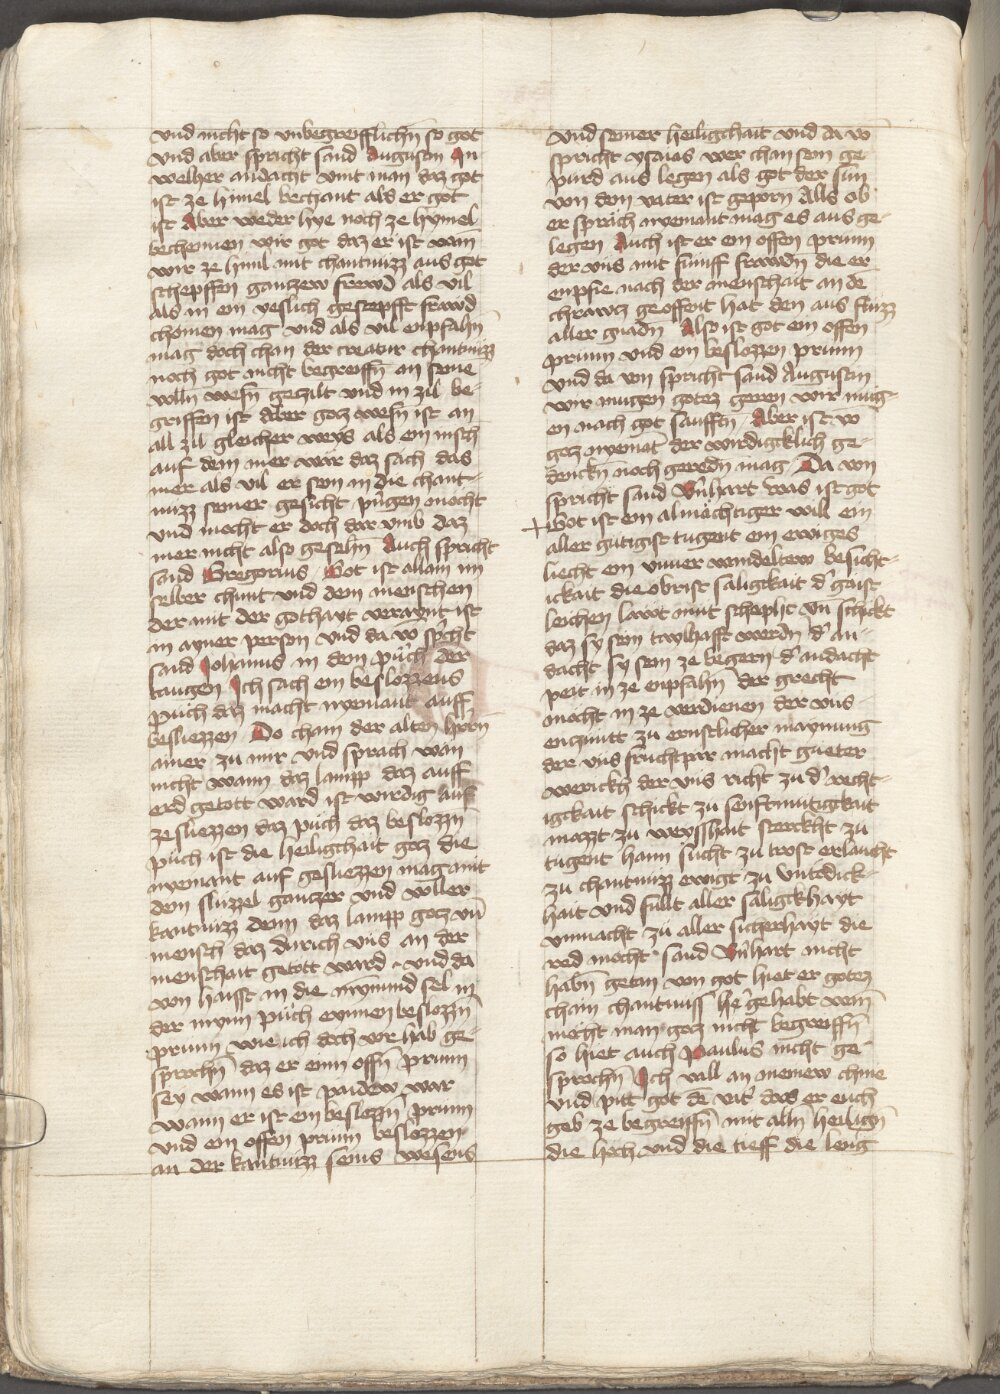 vnd nicht so vnbegreifflichn̄ so got
vnd aber spricht sand Augustin In
welher andacht vint man daz got
ist ze himel bechant als er got
ist Aber weder hye noch ze hymel
bechennen wir got daz er ist wann
wir ze himl mit chantnuzz aus got
schepffen ganczew frewd als vil
als in ein yeslich geschepfft frewd
chomen mag vnd als vil enpfahn̄
mag doch chan der creatur chantnuzz
noch got nicht begreiffn̄ an seine
volln wesn̄ gezilt vnd in zil be-
griffen ist Aber gocz wesn̄ ist an
all zil gleicher weys als ein visch
auf dem mer wär daz sach das
mer als vil er sein in die chant-
nuzz seiner gesicht pringen mocht
vnd mocht er doch dar vmb daz
mer nicht also gesehn̄ Auch spricht
sand Gregorius Got ist allain im
selber chunt vnd dem menschen
der mit der gothayt veraynt ist
in ayner person vnd da von spricht
sand Johannes in dem puch der
taugen Ich sach ein beslozzens
puch daz macht nyemant auff
besliezzen Do cham der alten hern̄
ainer zu mir vnd sprach wan
nicht wann daz lampp daz auff
erd getott ward ist wirdig auf
ze sliezzen daz puch daz beslozzn̄
puch ist die heiligchait gocz die
nyemant auf gesliezzen mag mit
dem sluzzel ganczer vnd voller
kantnuzz denn daz lampp gocz vn̄
mensch daz durich vns an der
menschait getott ward vnd da
von haisst in die mynnund sel in
der mynn puch eynnen beslozzn̄
prunn wie ich doch vor hab ge-
sprochn̄ daz er einn offn̄ prunn
sey wann es ist paidew war
wann er ist ein beslozzn̄ prunn
vnd ein offen prunn beslozzen
an der kantnuzz seins wesens
vnd seiner heiligchait vnd da vō
spricht ysaias wer chan sein ge
purd aus legen als got der sun
von dem vater ist geporn Alls ob
er sprach nyemant mag es aus ge-
legen Auch ist er ein offen prunn
der vns mit funff frewdn̄ die er
enpfie nach der menschait an dē
chrawcz geoffent hat den aus fluzz
aller gnadn̄ Also ist got ein offen
prunn vnd ein beslozzen prunn
vnd da von spricht sand Augustin
wir mugen gotez geren wir mug-
en nach got saufftn̄ Aber ist vō
gocz nyemāt der wirdigcklich ge-
denckn̄ noch geredn̄ mag Da von
spricht sand Pernhart was ist got
Got ist ein almächtiger will ein
aller gutigist tugent ein ewiges
liecht ein vnuerwendeltew besicht-
ickait die obrist saligkait d' gaist
leichen lawt mit scheplic vn̄ schickt
daz sy sein tailhafft werdn̄ d' an-
dacht sy sein ze begern d' andacht
peit in ze enpfahn̄ der grecht
macht in ze verdienen der vns
enczuntt zu ernstlicher maynung
der vns fruchtper macht gueter
werickch der vns richt zu d' recht-
igkait schickt zu senftmutigkait
mazzt zu weysshait sterckht zu
tugent haim sucht zu trost erlaucht
zu chantnuzz ewigt zu vntodick-
hait vnd fullt aller saligckhayt
vmmacht zu aller sicherhayt die
red mocht sand Pernhart nicht
habn̄ getan von got hiet er gotez
chain chantnuss hie gehabt wann̄
mocht man gocz nicht begreiffn̄
so hiet auch Paulus nicht ge-
sprochn̄ Ich vall an meinew chnie
vnd pitt got dē vat' das er euch
geb ze begreiffn̄ mit alln̄ heilign̄
die hoch vnd die tieff die leng